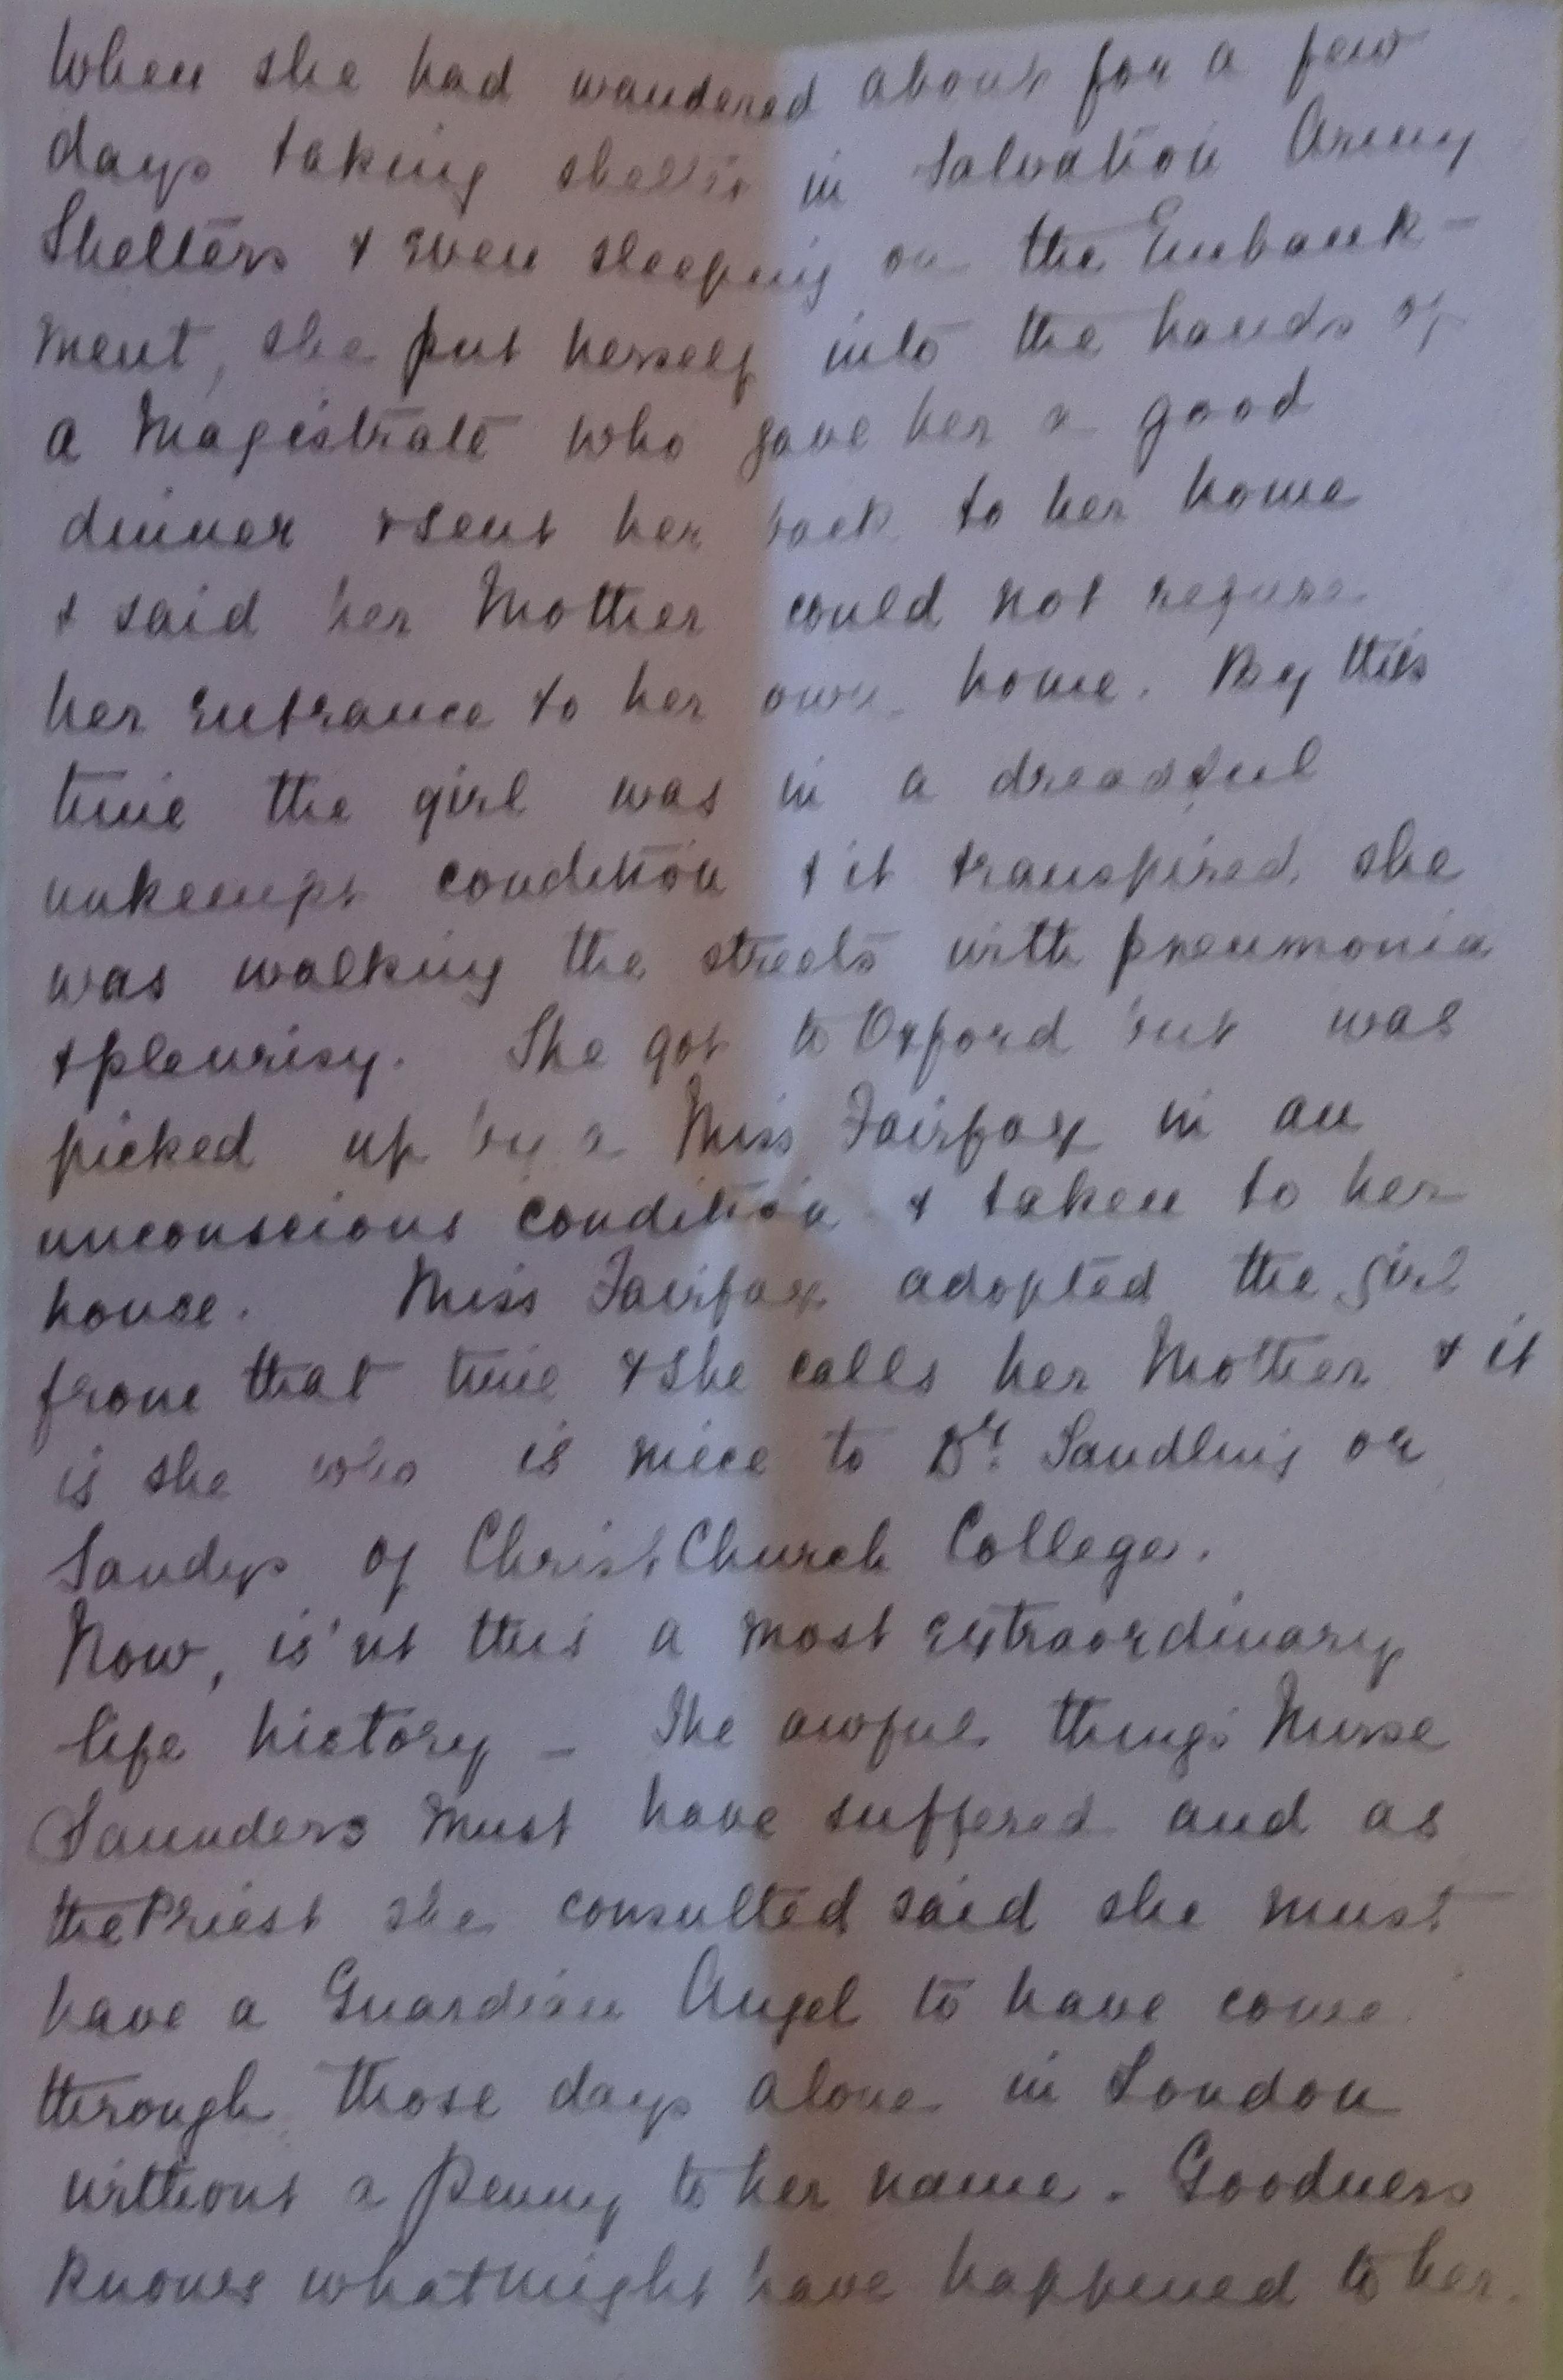 When she had wandered about for a few
days taking shelter in Salvation Army
Shelters & even sleeping on the Embank-
ment, she put herself into the hands of
a Magistrate who gave her a good
dinner & sent her back to her home
& said her Mother could not refuse
her entrance to her own home. By this
time the girl was in a dreadful
unkempt condition & it transpired she
was walking the streets with pneumonia
& pleurisy. She got to Oxford but was
picked up by a Miss Fairfax in an
unconscious condition & taken to her
house. Miss Fairfax adopted the girl
from that time & she calls her Mother & it
is she who is niece to Dr. Sandling or
Sandys of Christ Church College.
Now, is'nt this a most extraordinary
life history - The awful things Nurse
Saunders must have suffered and as
the Priest she consulted said she must
have a Guardian Angel to have come
through those days alone in London
without a penny to her name. Goodness
knows what might have happened to her.